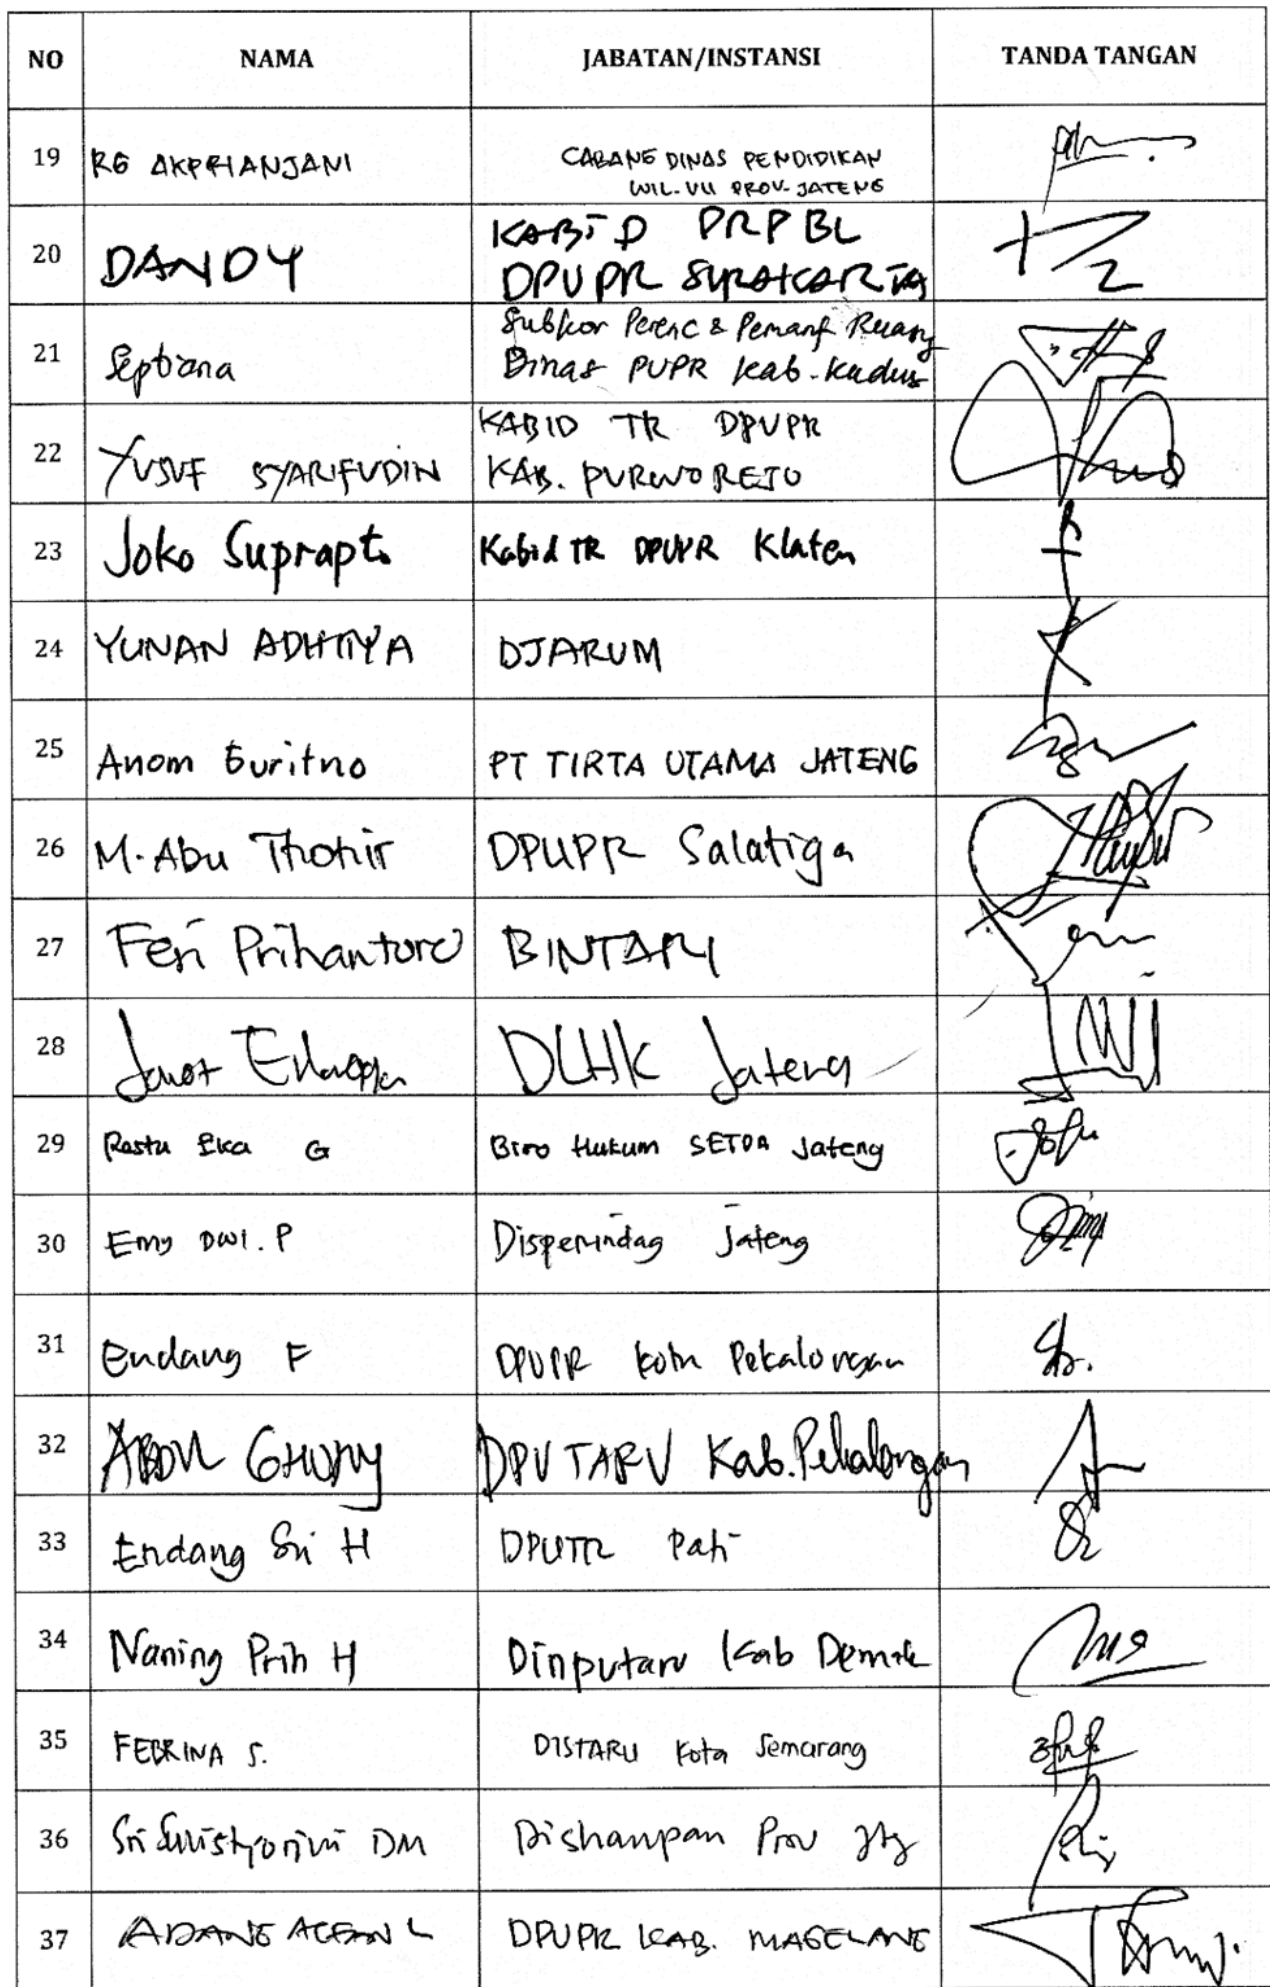 NO NAMA JABATAN/INSTANSI TANDA TANGAN
19 RG AKPRIANJANI CABANG DINAS PENDIDIKAN
WIL-VII PROV-JATENG
20 DANDY KABID PRPBL
DPUPR SURAKARTA
21 Septiana Subkor Perenc & Pemanf Ruang
Dinas PUPR Kab. Kudus
22 YUSUF SYARIFUDIN KABID TR DPUPR
KAB. PURWOREJO
23 Joko Suprapto Kabid TR DPUPR Klaten
24 YUNAN ADHITIYA DJARUM
25 Anom Guritno PT TIRTA UTAMA JATENG
26 M. Abu Thohir DPUPR Salatiga
27 Feri Prihantoro BINTARI
28 DLHK Jateng
29 Rastu Eka G Biro Hukum SETDA Jateng
30 Emy DWI. P Disperindag Jateng
31 Endang F DPUPR Kota Pekalongan
32 ABDUL GHONY DPU TARU Kab. Pekalongan
33 Endang Sri H DPUTR Pati
34 Naning Prih H Dinputaru Kab Demak
35 FEBRINA S. DISTARU Kota Semarang
36 Sri DM Dishanpan Prov Jtg
37 ADANG DPUPR KAB. MAGELANG